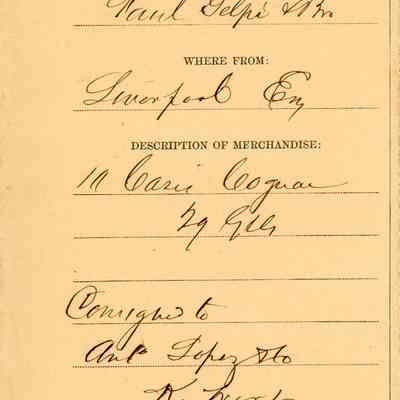 Paul Gelpi & Bro
WHERE FROM:
Liverpool Eng
DESCRIPTION OF MERCHANDISE:
10 Cases Cognac
29 Glls
Consigned to
Anto Lopez & Co
K. West